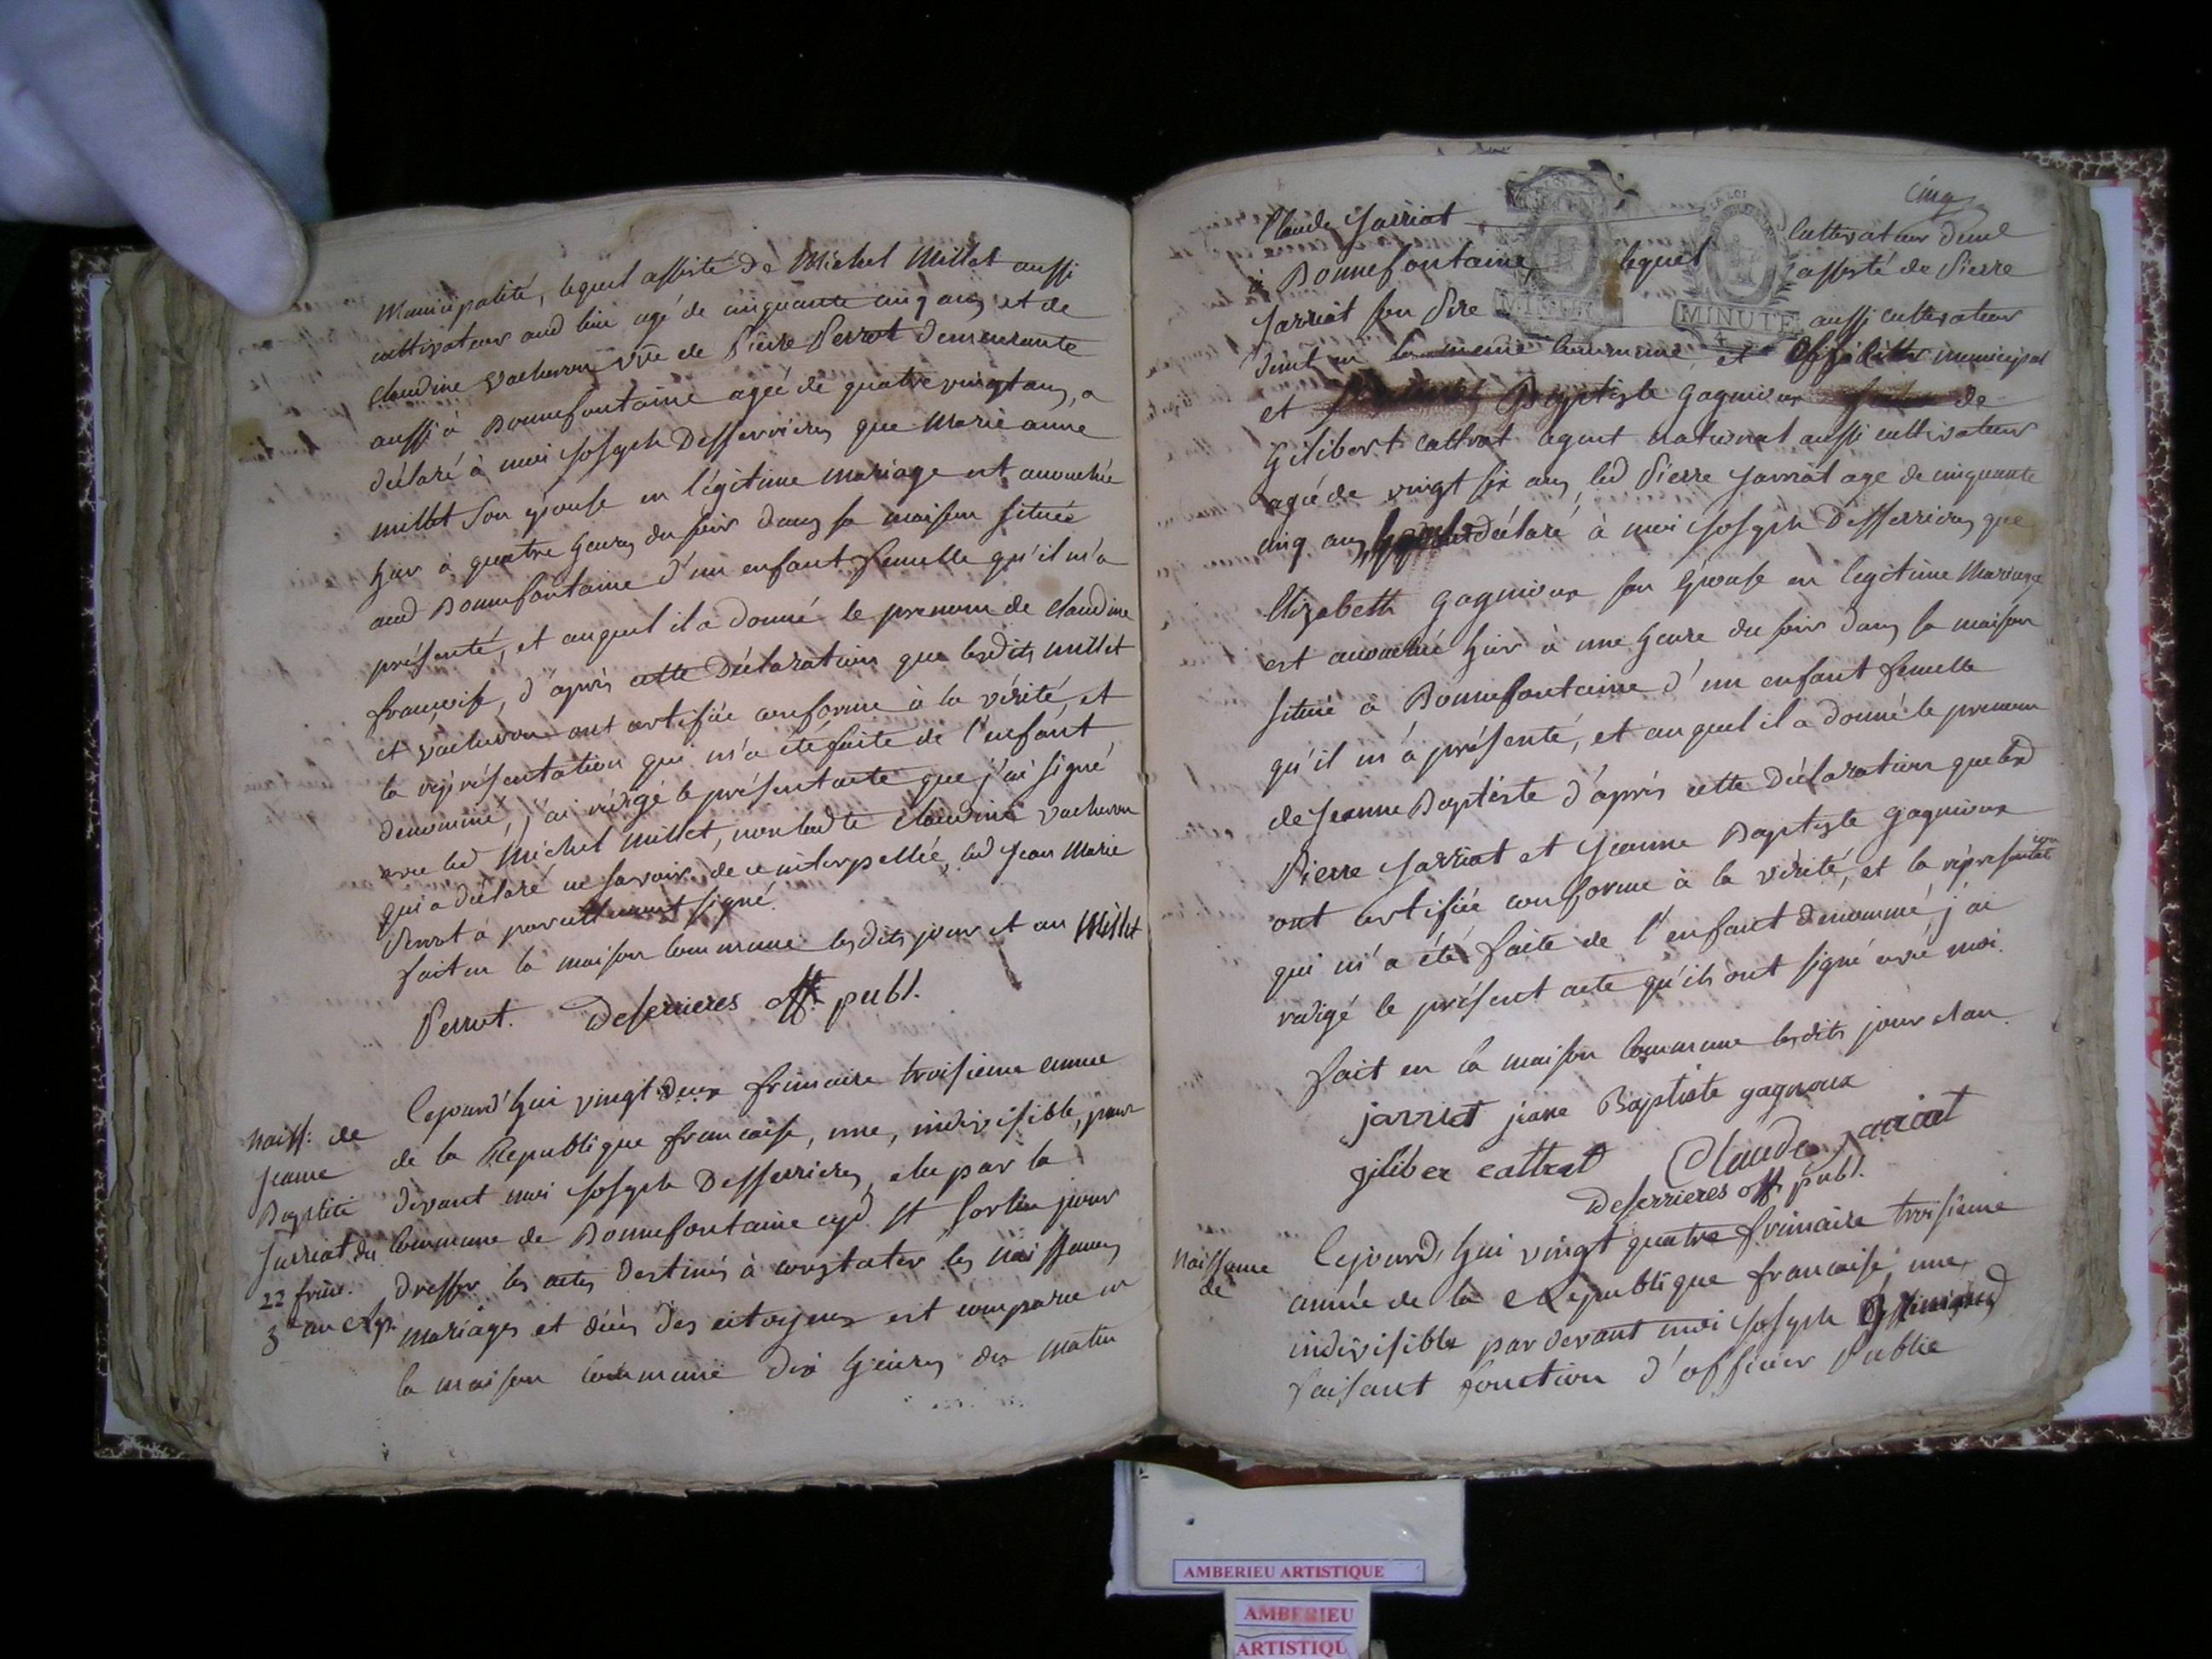 Municipalité, lequel assisté de Michel Millet aussi
cultivateur aud lieu agé de cinquante cinq ans et de
claudine vacheron vve de Pierre Perrot demeurante
aussi à Bonnefontaine agée de quatrevingt ans, a
déclaré à moi Joseph Desserrieres que Marie anne
millet son épouse en légitime mariage est accouchée
hier à quatre heures du soir dans sa maison située
aud Bonnefontaine d'un enfant femelle qu'il m'a
présenté, et auquel il a donné le prenom de claudine
françoise, d'après cette déclaration que lesdits millet
et vacheron ont certifiée conforme à la vérité, et
la représentation qui m'a été faite de l'enfant
denommé, j'ai rédigé le présent acte que j'ai signé
avec led Michel Millet, non ladte claudine vacheron
qui a déclaré ne savoir de ce interpellée, led Jean Marie
Perrot a pareillement signé
fait en la maison commune lesdits jour et an Millet
Perrot. Deserrieres off. publ.
Naiss: de
Jeanne
Baptite
Jarriat du
22 frim.
3e an Rep.
Cejourd'hui vingt deux frimaire troisieme année
de la Republique francaise, une, indivisible, par
devant moi Joseph Desserrieres, elu par la
Commune de Bonnefontaine cyd St Sorlin pour
dresser les actes destinés à constater les naissances
mariages et décès des citoyens est comparu en
la maison commune dix heures du matin
cinq
Claude Jarriat cultivateur demt
à Bonnefontaine lequel assisté de Pierre
Jarriat son Pere aussi cultivateur
MINUTE
MINUTE
4
demt en la meme commune et officier municipal
et Baptiste gagnieux de
Gilibert cattrat agent national aussi cultivateur
agée de vingt six ans, led Pierre Jarriat age de cinquante
cinq ans, déclaré à moi Joseph Desserrieres que
Elizabeth gagnieux son épouse en legitime Mariage
est accouchée hier à une heure du soir dans sa maison
située à Bonnefontaine d'un enfant femelle
qu'il m'a présenté, et auquel il a donné le prenom
de Jeanne Baptiste d'après cette déclaration que led
Pierre Jarriat et Jeanne Baptiste gagnieux
ont certifiée conforme à la vérité, et la représentation
qui m'a été faite de l'enfant denommé j'ai
rédigé le présent acte qu'ils ont signé avec moi.
fait en la maison Commune lesdits jour et an.
jarriat jeane Baptiste gagneux
giliber cattrat Claude jarriat
Deserrieres off. publ.
Naissance
de
Cejourd'hui vingt quatre frimaire troisieme
année de la Republique francaise, une,
indivisible par devant moi Joseph
faisant fonction d'officier Public
AMBERIEU ARTISTIQUE
AMBERIEU
ARTISTIQU